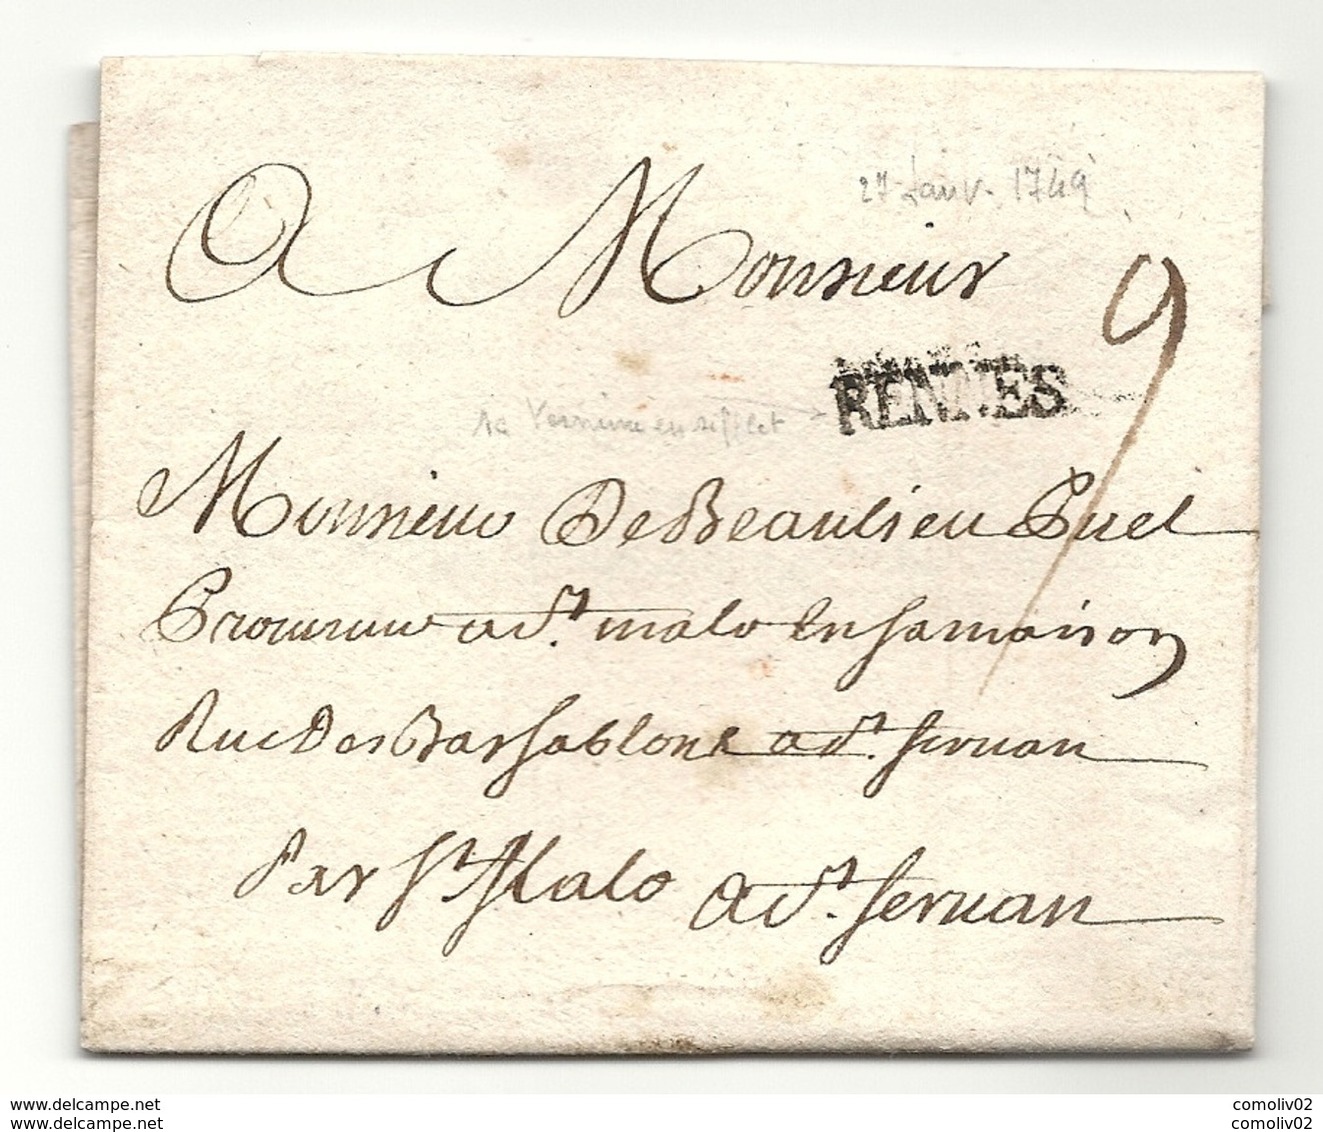 27 Janv. 1749
A Monsieur
9
RENNES
Monsieur De Beaulieu Puel
Procureur a St. malo En Sa maison
Rue Des Bas Sablons a St. Servan
Par St. Malo a St. Servan
www.delcampe.net comoliv02
www.delcampe.net comoliv02